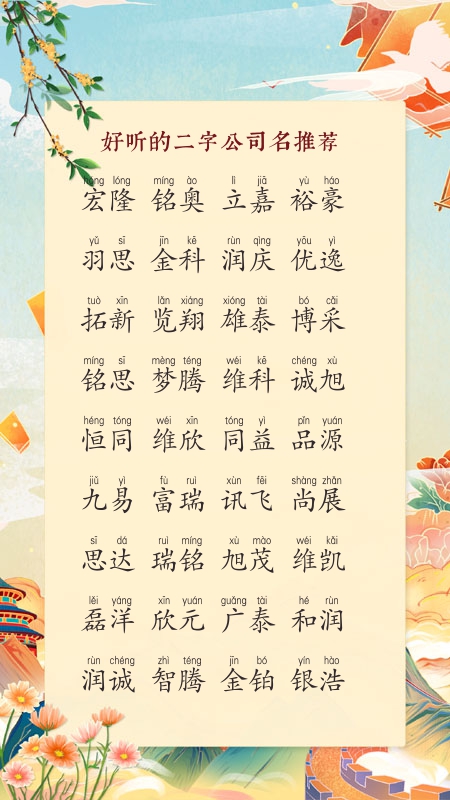 好听的二字公司名推荐
hóng lóng míng ào lì jiā yù háo
宏隆 铭奥 立嘉 裕豪
yǔ sī jīn kē rùn qìng yōu yì
羽思 金科 润庆 优逸
tuò xīn lǎn xiáng xióng tài bó cǎi
拓新 览翔 雄泰 博采
míng sī mèng téng wéi kē chéng xù
铭思 梦腾 维科 诚旭
héng tóng wéi xīn tóng yì pǐn yuán
恒同 维欣 同益 品源
jiǔ yì fù ruì xùn fēi shàng zhǎn
九易 富瑞 讯飞 尚展
sī dá ruì míng xù mào wéi kǎi
思达 瑞铭 旭茂 维凯
lěi yáng xīn yuán guǎng tài hé rùn
磊洋 欣元 广泰 和润
rùn chéng zhì téng jīn bó yín hào
润诚 智腾 金铂 银浩